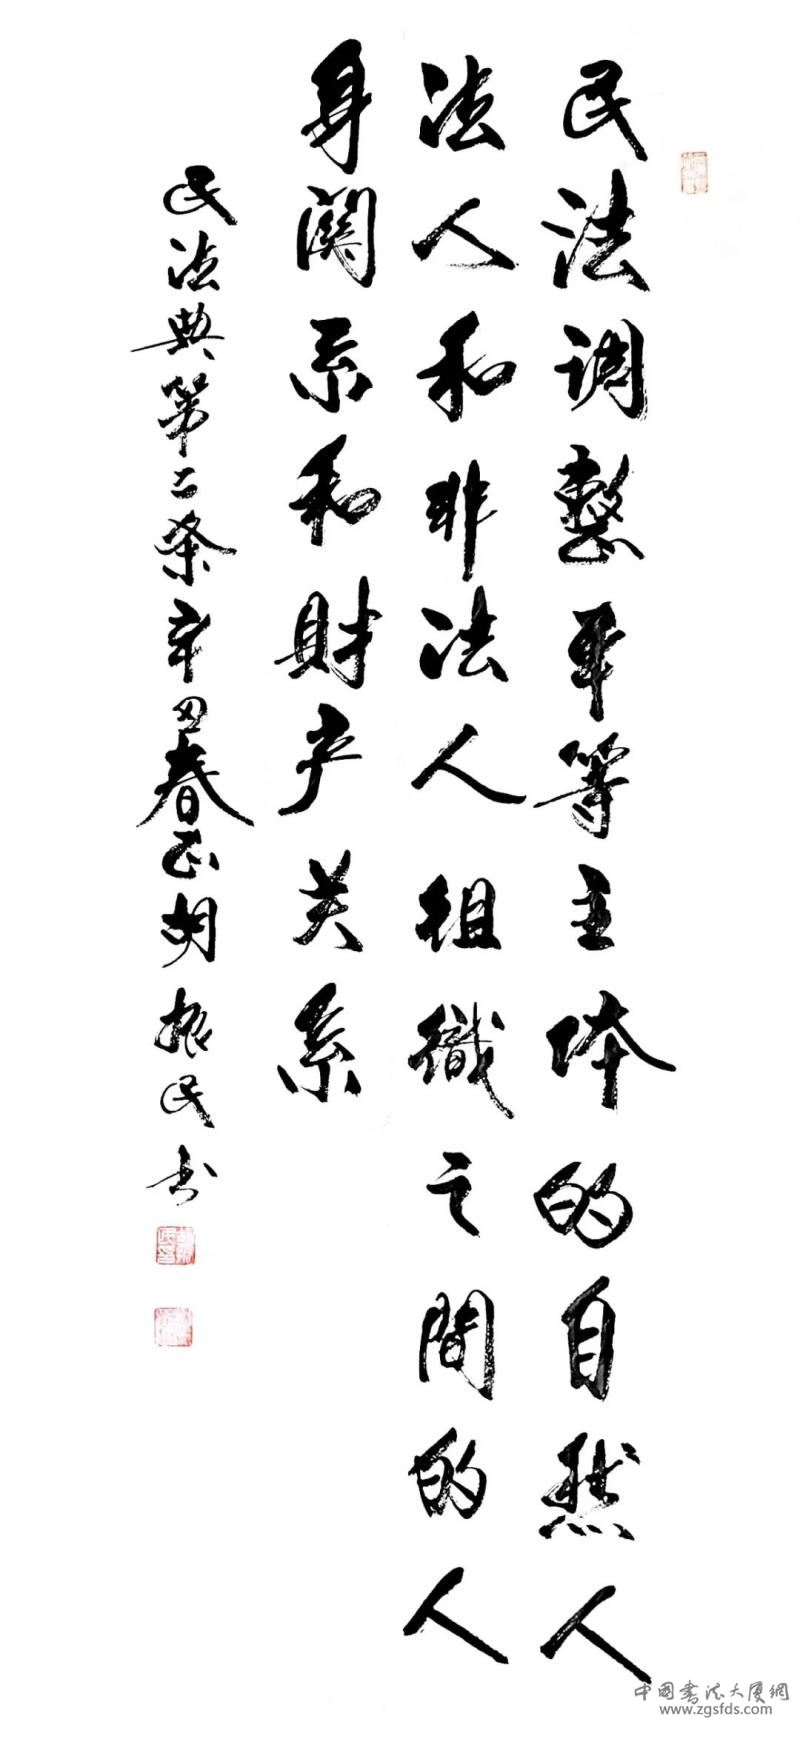 民法调整平等主体的自然人
法人和非法人组織之間的人
身関系和財产关系
民法典第二条辛丑春正胡振民书
中國書法大厦網
www.zgsfds.com